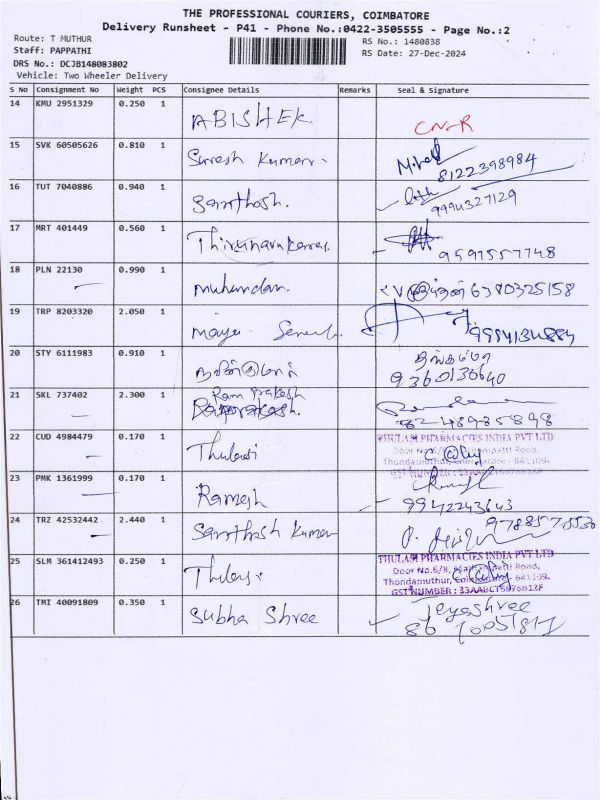 THE PROFESSIONAL COURIERS, COIMBATORE
Delivery Runsheet - P41 - Phone No.:0422-3505555 - Page No.:2
Route: T MUTHUR
RS No.: 1480838
Staff: PAPPATHI
RS Date: 27-Dec-2024
DRS No.: DCJB148083802
Vehicle: Two Wheeler Delivery
S No Consignment No Weight PCS Consignee Details Remarks Seal & Signature
14 KMU 2951329 0.250 1 ABISHEK CN-R
15 SVK 60505626 0.810 1 Suresh Kumar 8122398984
16 TUT 7040886 0.940 1 Santhosh. 9994327129
17 MRT 401449 0.560 1 9597557748
18 PLN 22130 0.990 1 Muhundan. 6380325158
19 TRP 8203320 2.050 1 9984134884
20 STY 6111983 0.910 1 9360130640
21 SKL 737402 2.300 1 Ram Prakash
22 CUD 4984479 0.170 1 Thulasi THULASI PHARMACIES INDIA PVT LTD
23 PMK 1361999 0.170 1 Ramesh 9942243643
24 TRZ 42532442 2.440 1 Santhosh Kumar
25 SLM 361412493 0.250 1 Thulasi THULASI PHARMACIES INDIA PVT LTD
Door No.6/8, Road,
Thondamuthur, 641 109.
GST NUMBER : 33AABCT5876B1ZF
26 TMI 40091809 0.350 1 Subha Shree Jeyashree